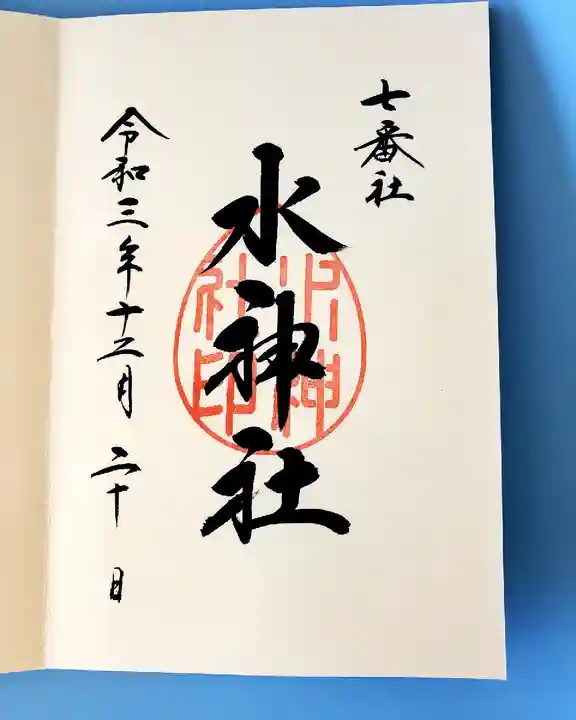 七番社
水神社
水神社印
令和三年十二月二十日